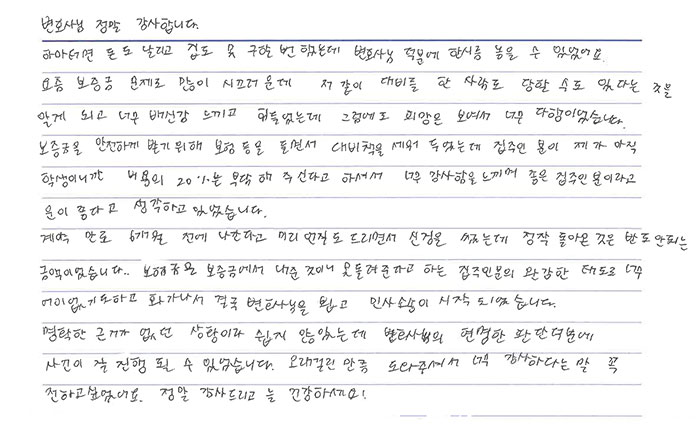 변호사님 정말 감사합니다.
하마터면 돈도 날리고 집도 못 구할 뻔 했는데 변호사님 덕분에 한시름 놓을 수 있었어요.
요즘 보증금 문제로 많이 시끄러운데 저 같이 대비를 한 사람도 당할 수도 있다는 것을
알게 되고 너무 배신감 느끼고 힘들었는데 그럼에도 희망은 보여서 너무 다행이었습니다.
보증금을 안전하게 받기 위해 보험 등을 들면서 대비책을 세워 두었는데 집주인 분이 제가 아직
학생이니깐 비용의 20%는 부담해 주신다고 하셔서 너무 감사함을 느끼며 좋은 집주인분이라고
운이 좋다고 생각하고 있었습니다.
계약 만료 6개월 전에 나간다고 미리 언질도 드리면서 신경을 썼는데 정작 돌아온 것은 반도 안되는
금액이었습니다.. 보험금은 보증금에서 내준 것이니 못돌려준다고 하는 집주인분의 완강한 태도로 너무
어이없기도하고 화가나서 결국 변호사님을 뵙고 민사소송이 시작 되었습니다.
명확한 근거가 없던 상황이라 쉽지 않았는데 변호사님의 현명한 판단덕분에
사건이 잘 진행 될 수 있었습니다. 오래걸린 만큼 도와주셔서 너무 감사하다는 말 꼭
전하고싶었어요. 정말 감사드리고 늘 건강하세요!